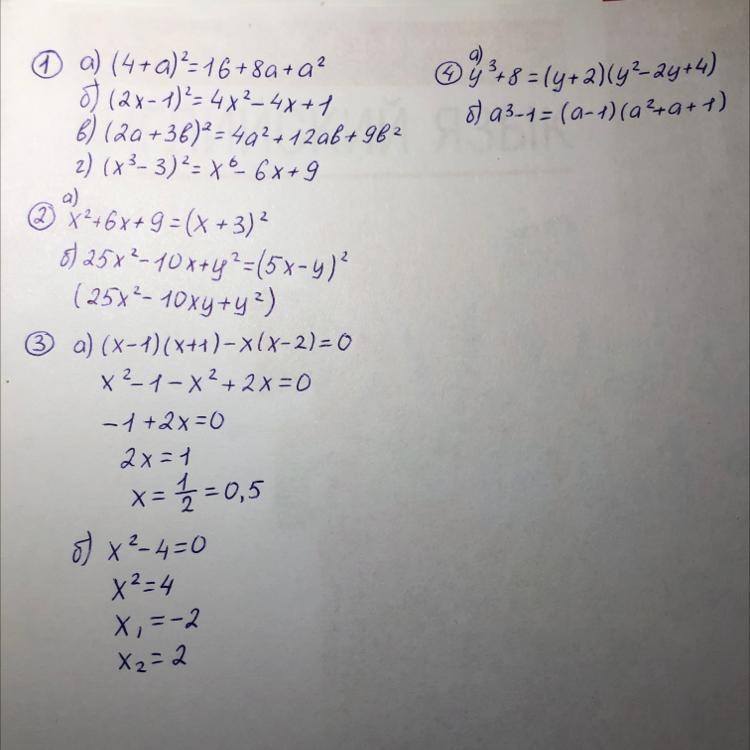 ① а) (4+a)²=16+8a+a²
б) (2x-1)²=4x²-4x+1
в) (2a+3b)²=4a²+12ab+9b²
г) (x³-3)²=x⁶-6x+9
② а) x²+6x+9=(x+3)²
б) 25x²-10x+y²=(5x-y)²
(25x²-10xy+y²)
③ а) (x-1)(x+1)-x(x-2)=0
x²-1-x²+2x=0
-1+2x=0
2x=1
x=1/2=0,5
б) x²-4=0
x²=4
x₁=-2
x₂=2
④ а) y³+8=(y+2)(y²-2y+4)
б) a³-1=(a-1)(a²+a+1)